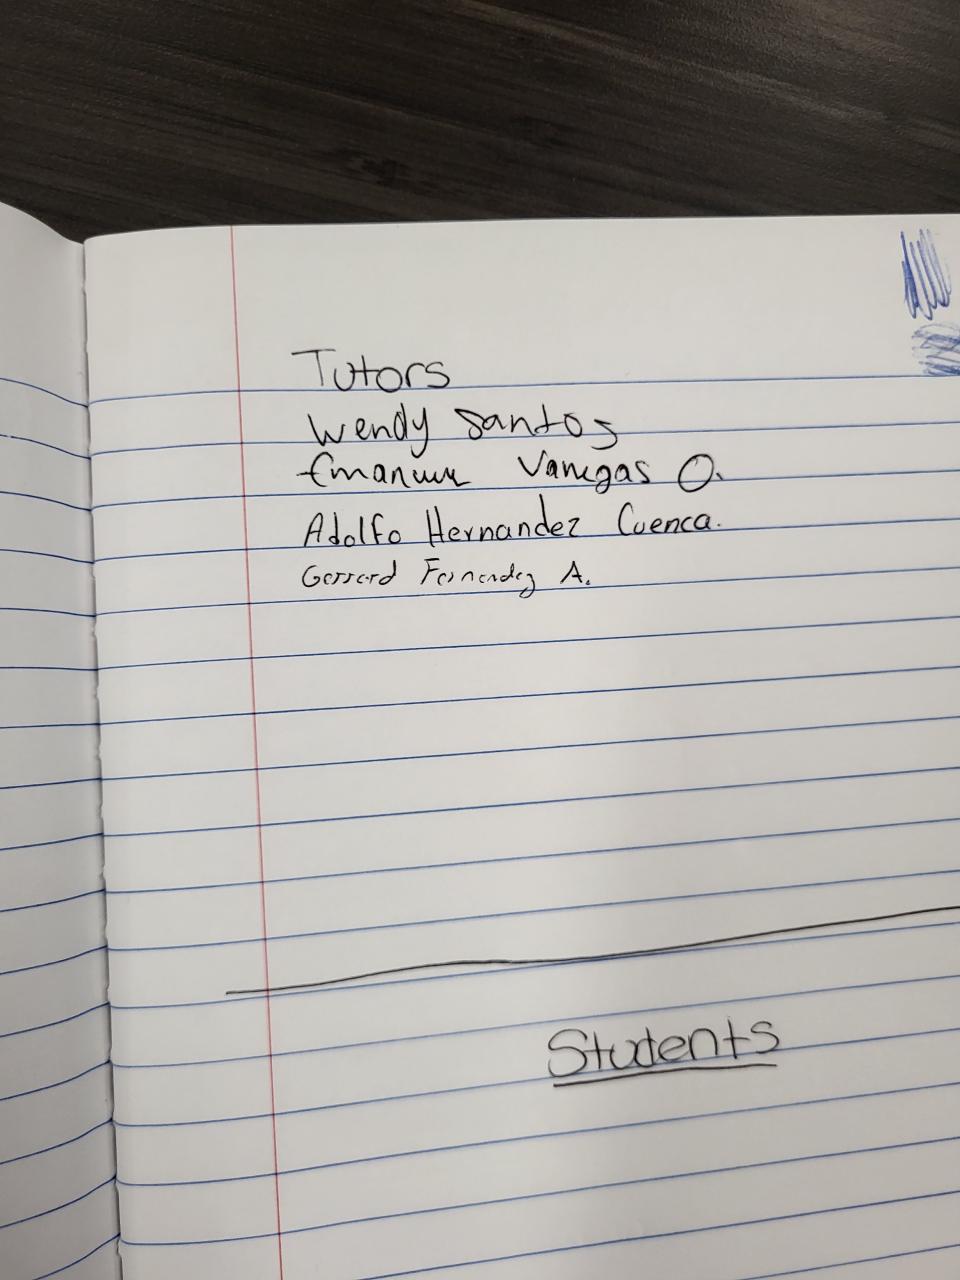 Tutors
Wendy Santos
Vanegas O.
Adolfo Hernandez Cuenca.
Gerrard Fernandez A.
Students